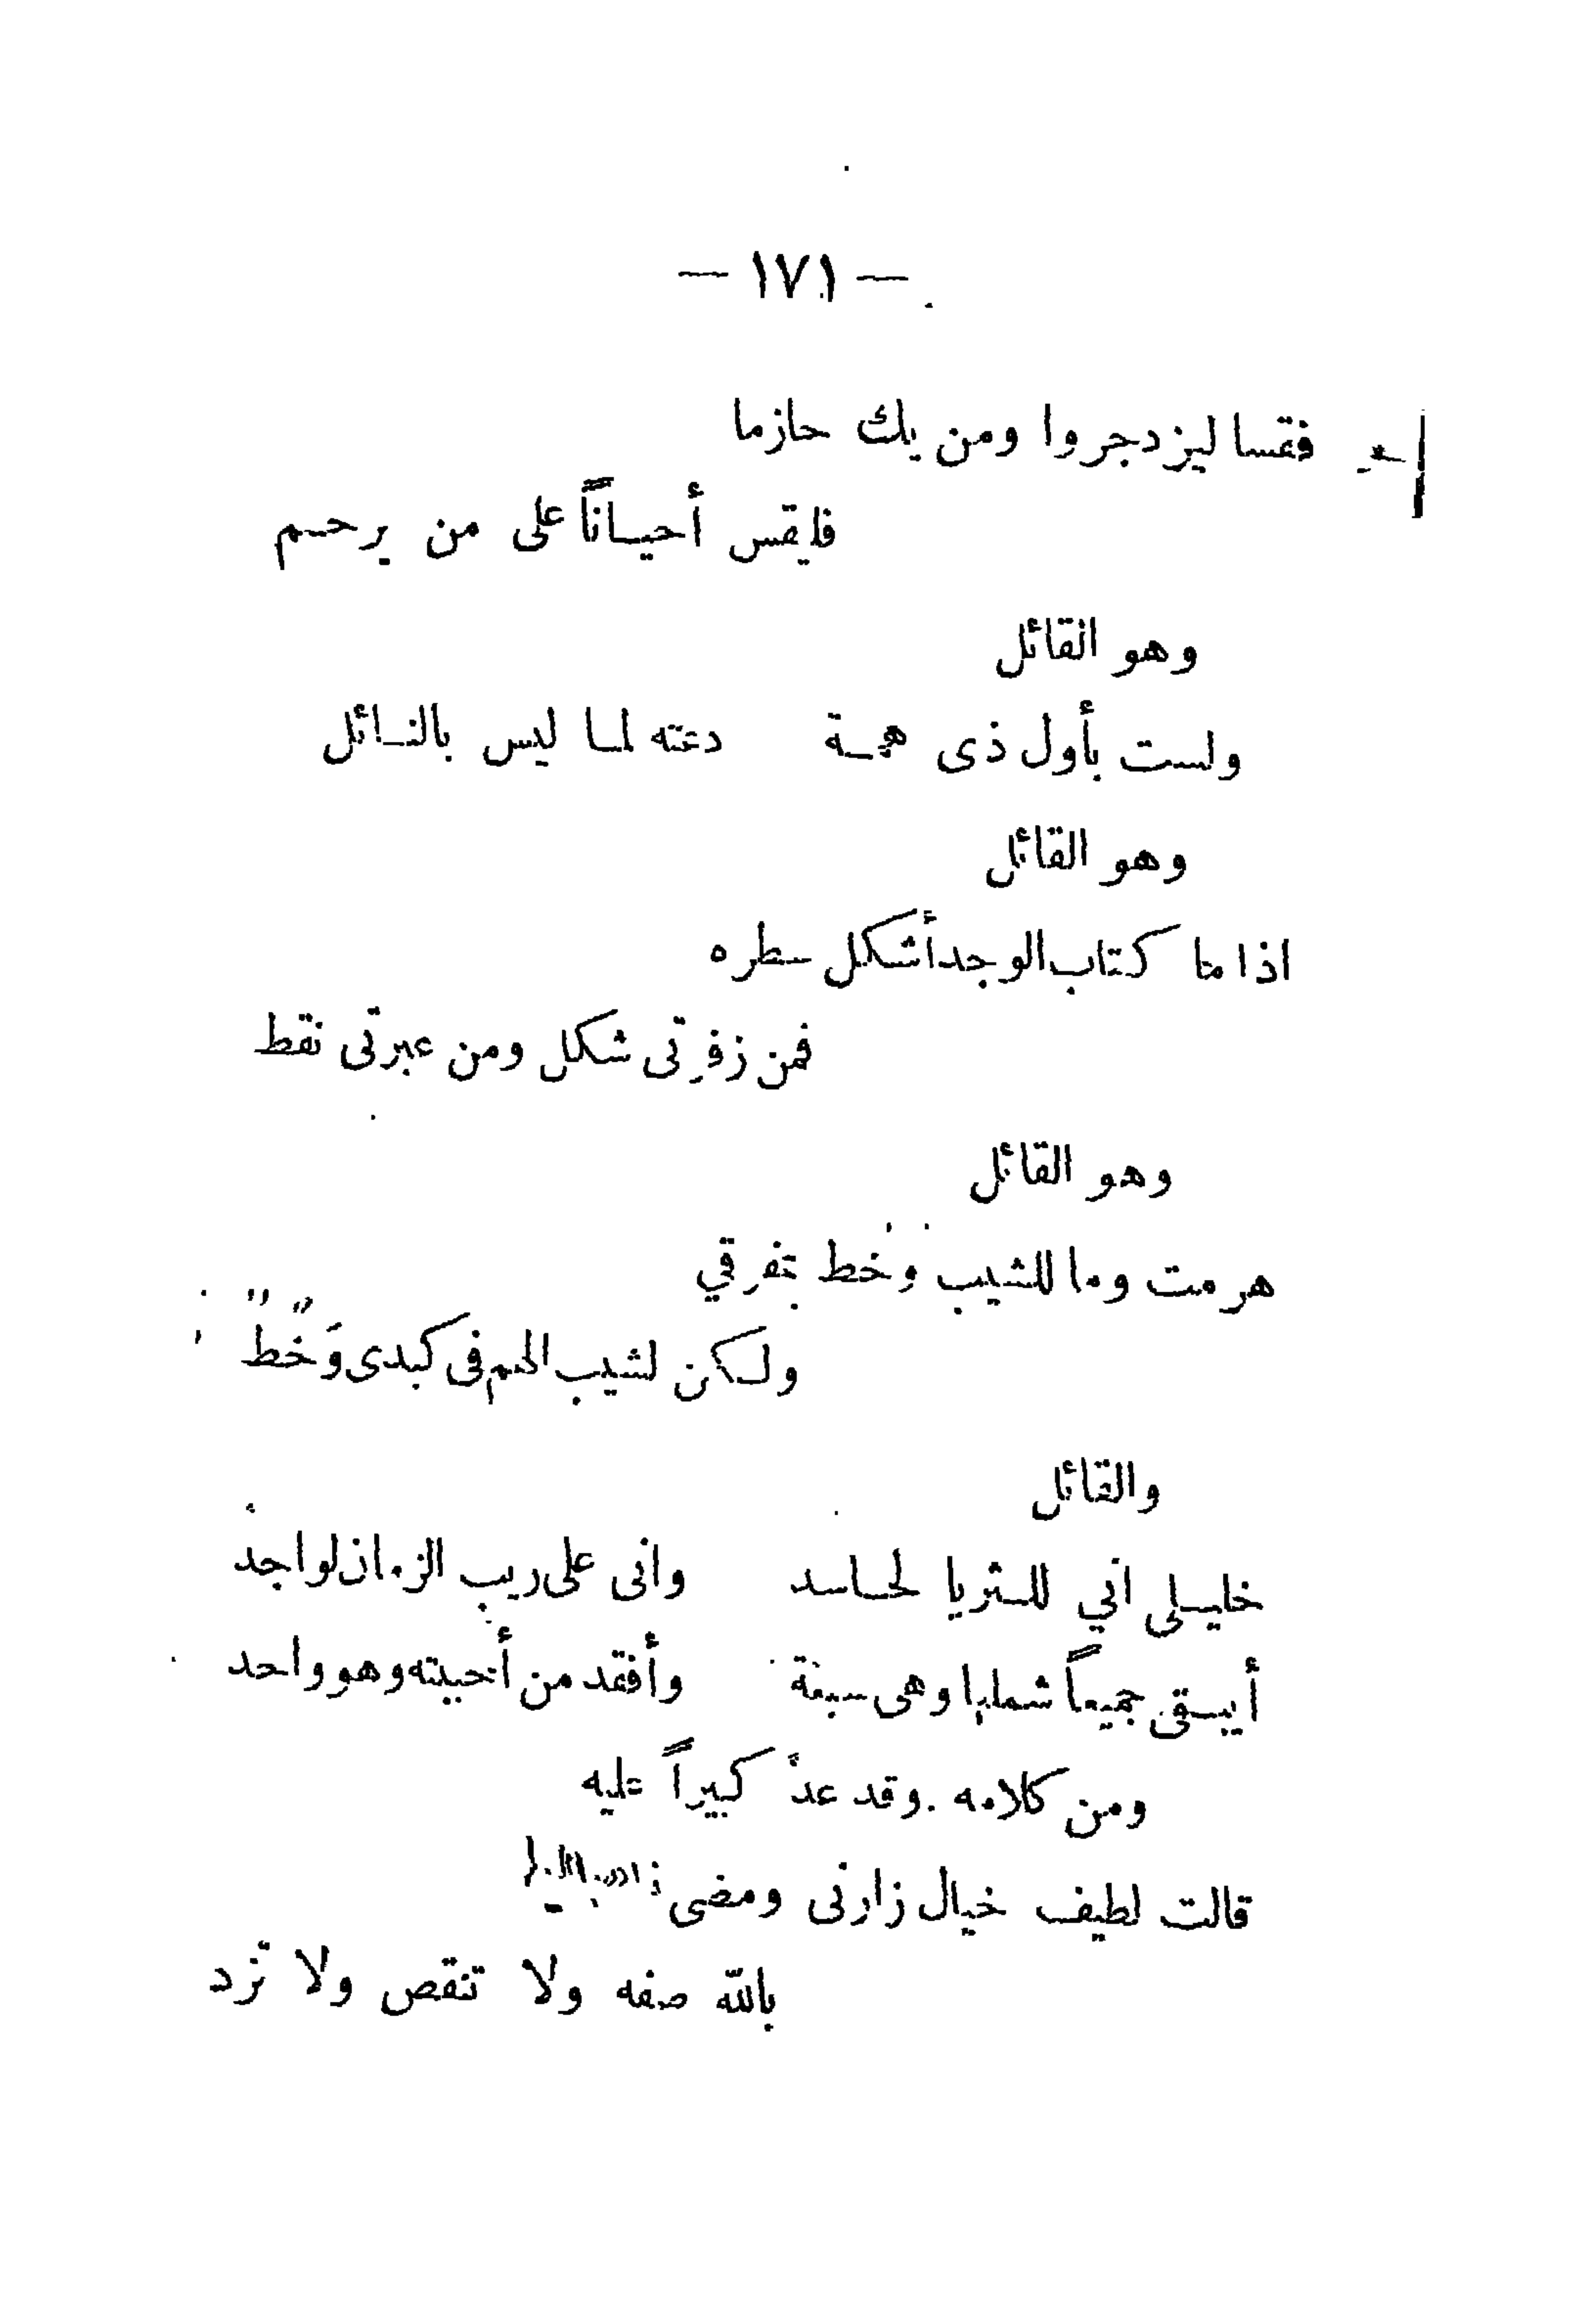 — ١٧١ —
فقسا ليزدجروا ومن يك حازما
فليقس أحياناً على من يرحم
وهو القائل
ولست بأول ذى همة دعته لما ليس بالنائل
وهو القائل
اذا ما كتاب الوجد أشكل سطره
فمن زفرتى شكل ومن عبرتى نقط
وهو القائل
هرمت وما للشيب وخط بمفرقي
ولكن لشيب الهم فى كبدى وَخطٌ
والقائل
خليلى اني للثريا لحاسد وانى على ريب الزمان لواجد
أيبقى جميعاً شملها وهى سبعة وأفقد من أحببته وهو واحد
ومن كلامه . وقد عدّ كبيراً عليه
قالت لطيف خيال زارنى ومضى
بالله صفه ولا تنقص ولا تزد